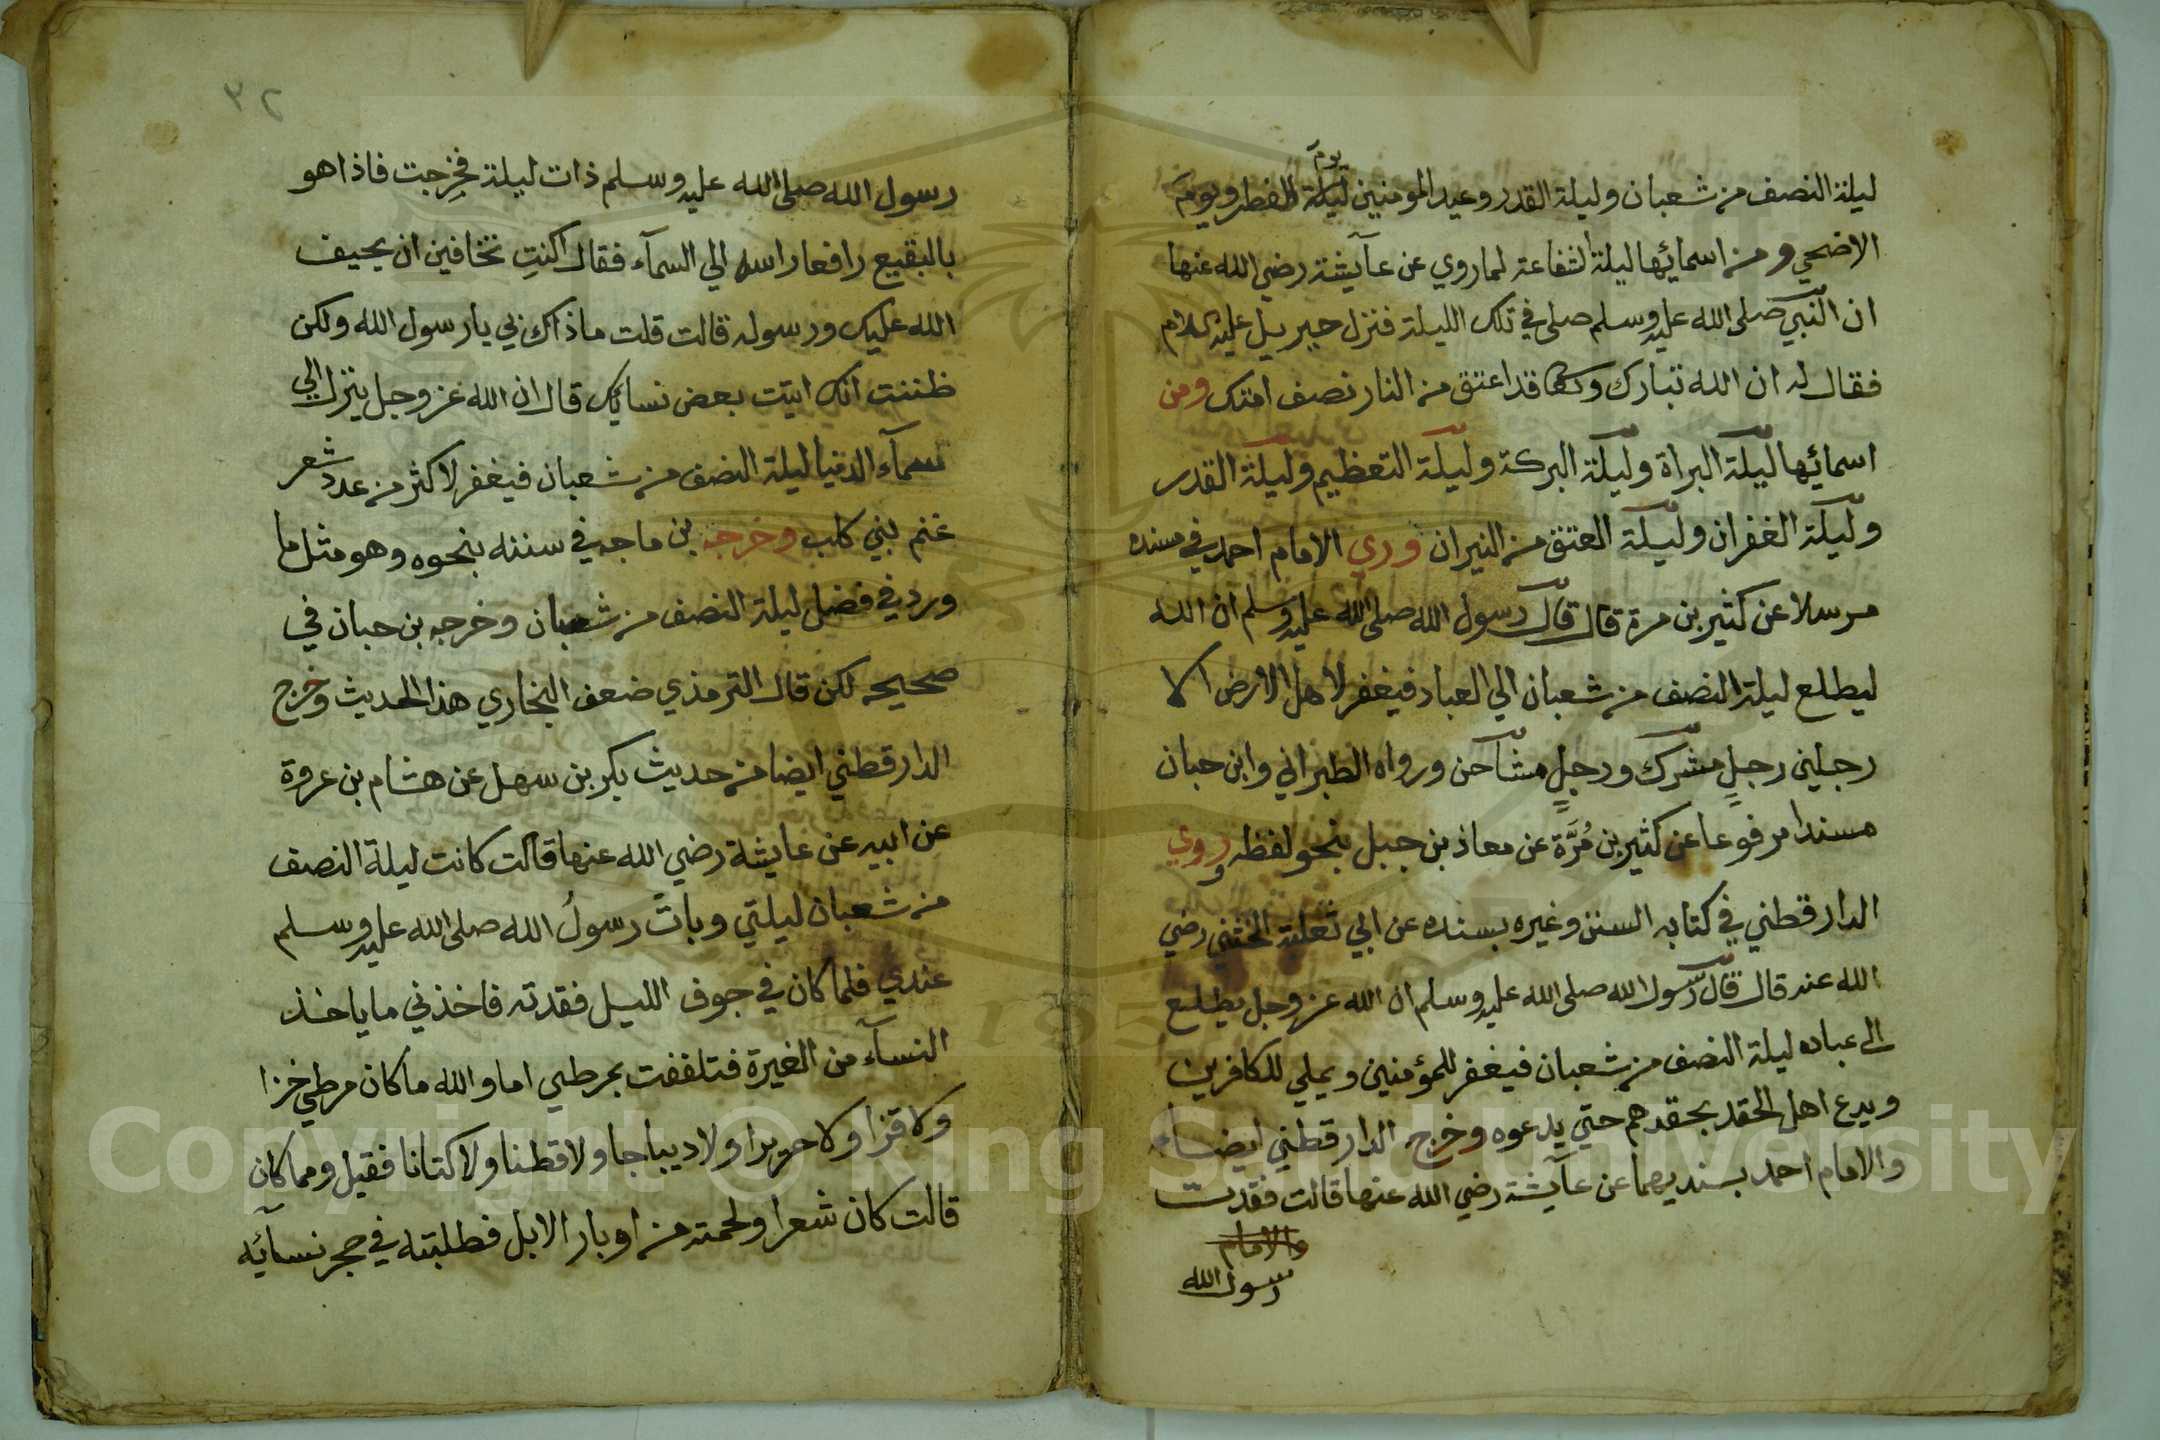 ليلة النصف من شعبان وليلة القدر وعيد المومنين ليلة الفطر ويوم
يوم
الاضحي ومن اسمائها ليلة الشفاعة لما روي عن عآيشة رضي الله عنها
ان النبي صلى الله عليه وسلم صلى في تلك الليلة فنزل جبريل عليه السلام
فقال له ان الله تبارك وتعالى قد اعتق من النار نصف امتك ومن
اسمائها ليلة البرأة وليلة البركة وليلة التعظيم وليلة القدر
وليلة الغفران وليلة العتق من النيران وروي الامام احمد في مسنده
مرسلا عن كثير بن مرة قال قال رسول الله صلى الله عليه وسلم ان الله
ليطلع ليلة النصف من شعبان الي العباد فيغفر لاهل الارض الا
رجلين رجل مشرك ورجل مشاحن ورواه الطبراني وابن حبان
مسندا مرفوعا عن كثير بن مُرَّة عن معاذ بن جبل بنحو لفظه وروي
الدارقطني في كتابه السنن وغيره بسنده عن ابي ثعلبة الخشني رضي
الله عنه قال قال رسول الله صلى الله عليه وسلم ان الله عز وجل يطلع
الى عباده ليلة النصف من شعبان فيغفر للمؤمنين ويملي للكافرين
ويدع اهل الحقد بحقدهم حتي يدعوه وخرج الدارقطني ايضا
والامام احمد بسنديهما عن عآيشة رضي الله عنها قالت فقدت
والامام
رسول الله
٣٢
رسول الله صلى الله عليه وسلم ذات ليلة فخرجت فاذا هو
بالبقيع رافعا راسه الي السمآء فقال اكنتِ تخافين ان يحيف
الله عليك ورسوله قالت قلت ما ذاك بي يا رسول الله ولكن
ظننت انك اتيت بعض نسائك قال ان الله عز وجل ينزل الي
سمآء الدنيا ليلة النصف من شعبان فيغفر لاكثر من عدد شعر
غنم بني كلب وخرجه بن ماجه في سننه بنحوه وهو مثل ما
ورد في فضل ليلة النصف من شعبان وخرجه بن حبان في
صحيحه لكن قال الترمذي ضعف البخاري هذا الحديث وخرج
الدارقطني ايضا من حديث بكر بن سهل عن هشام بن عروة
عن ابيه عن عايشة رضي الله عنها قالت كانت ليلة النصف
من شعبان ليلتي وبات رسولُ الله صلى الله عليه وسلم
عندي فلما كان في جوف الليل فقدته فاخذني ما ياخذ
النسآء من الغيرة فتلففت بمرطي اما والله ما كان مرطي خزا
ولا قزا ولا حريرا ولا ديباجا ولا قطنا ولا كتانا فقيل ومما كان
قالت كان شعرا ولحمته من اوبار الابل فطلبته في حجر نسآئه
Copyright © King Saud University
195